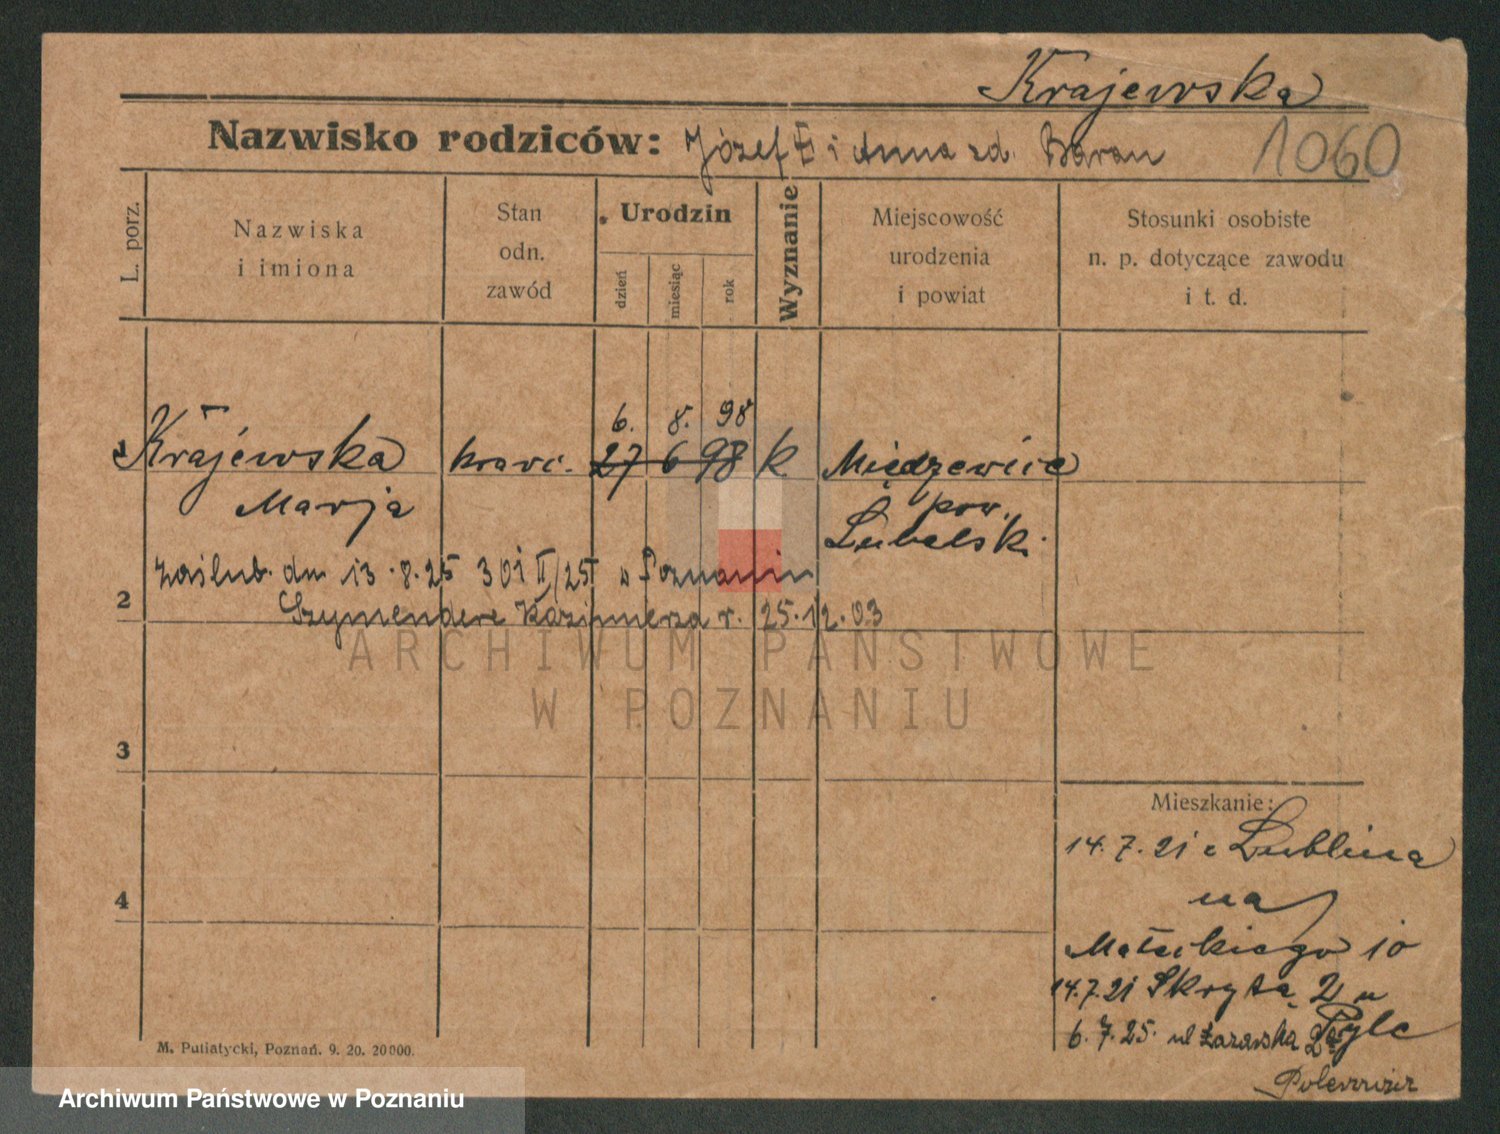 Krajewska
Nazwisko rodziców: Józef i Anna zd. Baran
1060
L. porz.
Nazwiska
i imiona
Stan
odn.
zawód
Urodzin
dzień
miesiąc
rok
Wyznanie
Miejscowość
urodzenia
i powiat
Stosunki osobiste
n. p. dotyczące zawodu
i t. d.
6. 8. 98
1 Krajewska 27 6 98 k
Marja
pow.
Lubelski
zaślub. dn 13.8.25 301 II/25 w Poznaniu
2
Kazimierza r. 25.12.03
ARCHIWUM PAŃSTWOWE
W POZNANIU
3
Mieszkanie:
14.7.21 z Lublina
na
4
Małeckiego 10
14.7.21 Skryta 2 u
Pyle
6.7.25. ul Łazarska
M. Putiatycki, Poznań. 9. 20. 20000.
Archiwum Państwowe w Poznaniu